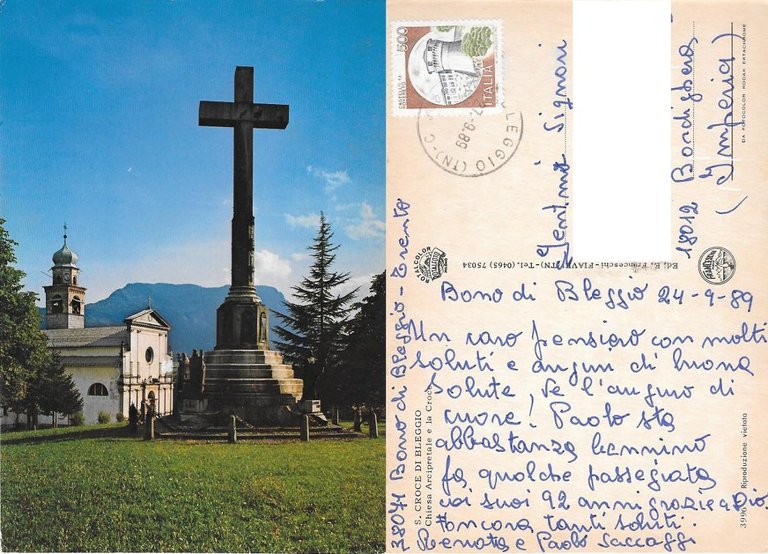 500
ITALIA
BLEGGIO (TN)
9.89
Gentmi Signori
18012 Bordighera
(Imperia)
DA FOTOCOLOR KODAK EKTACHROME
Ed. E. Franceschi - FIAVE' (TN) - Tel. (0465) 75034
38071 Bono di Bleggio - Trento
S. CROCE DI BLEGGIO
Chiesa Arcipretale e la Croce
Riproduzione vietata
Bono di Bleggio 24-9-89
Un caro pensiero con molti
saluti e auguri di buona
salute, Ve l'auguro di
cuore! Paolo sta
abbastanza bennino
fa qualche passegiata
coi suoi 92 anni grazie a Dio.
Ancora tanti saluti.
Renata e Paolo Saccaggi